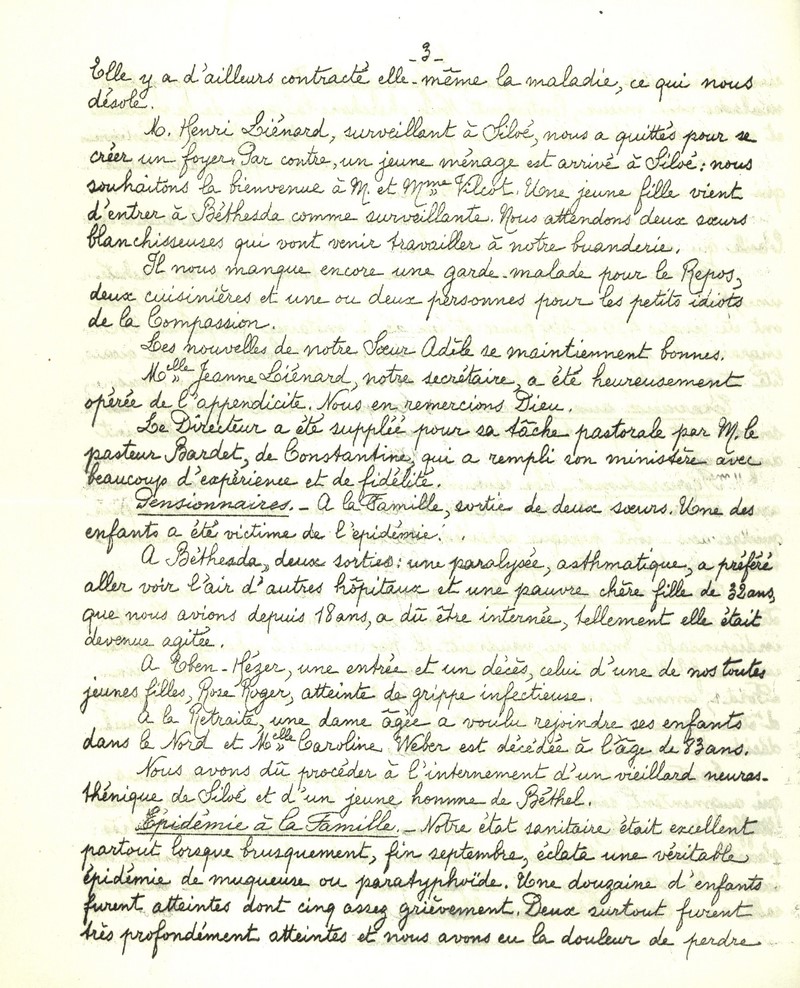 -3-
Elle y a d'ailleurs contracté elle-même la maladie, ce qui nous
désole.
M. Henri Liénard, surveillant à Siloé, nous a quittés pour se
créer un foyer. Par contre, un jeune ménage est arrivé à Siloé: nous
souhaitons la bienvenue à M. et Mme Vilcot. Une jeune fille vient
d'entrer à Béthesda comme surveillante. Nous attendons deux sœurs
blanchisseuses qui vont venir travailler à notre buanderie.
Il nous manque encore une garde-malade pour le Repos,
deux cuisinières et une ou deux personnes pour les petits idiots
de la Compassion.
Les nouvelles de notre Sœur Adèle se maintiennent bonnes.
Melle Jeanne Liénard, notre secrétaire, a été heureusement
opérée de l'appendicite. Nous en remercions Dieu.
Le Directeur a été suppléé pour sa tâche pastorale par M. le
pasteur Bardet, de Constantine, qui a rempli son ministère avec
beaucoup d'expérience et de fidélité.
Pensionnaires. - A la Famille, sortie de deux sœurs. Une des
enfants a été victime de l'épidémie.
A Béthesda, deux sorties: une paralysée, asthmatique, a préféré
aller voir l'air d'autres hôpitaux et une pauvre chère fille de 32 ans,
que nous avions depuis 18 ans, a dû être internée, tellement elle était
devenue agitée.
A Eben-Hézer, une entrée et un décès, celui d'une de nos toutes
jeunes filles, Rose Roger, atteinte de grippe infectieuse.
A la Retraite, une dame âgée a voulu rejoindre ses enfants
dans le Nord et Melle Caroline Weber est décédée à l'âge de 83 ans.
Nous avons dû procéder à l'internement d'un vieillard neuras-
thénique de Siloé et d'un jeune homme de Béthel.
Epidémie à la Famille. - Notre état sanitaire était excellent
partout lorsque brusquement, fin septembre, éclata une véritable
épidémie de muqueuse ou paratyphoïde. Une douzaine d'enfants
furent atteintes dont cinq assez grièvement. Deux surtout furent
très profondément atteintes et nous avons eu la douleur de perdre